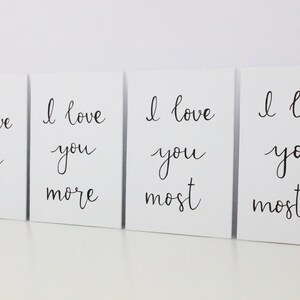 I love
you
more
I love
you
most
I l
yo
most